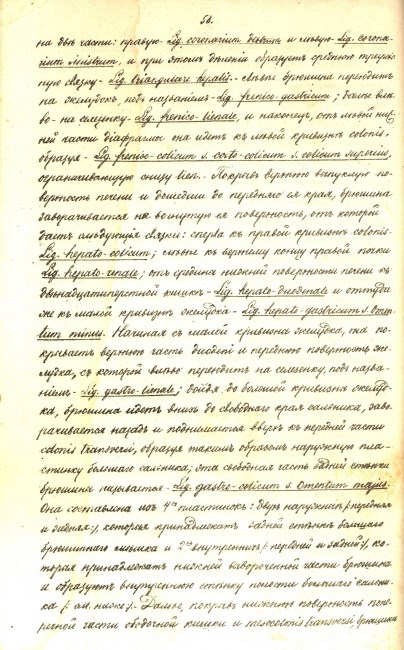 58.
на двѣ части: правую - Lig. coronarium dextrum и лѣвую - Lig. corona-
rium sinistrum, и при этомъ дѣленіи образуетъ среднюю треуголь-
ную связку - Lig. triangulare hepatis. - Лѣвѣе брюшина переходитъ
на желудокъ, подъ названіемъ - Lig. frenico-gastricum; далѣе влѣ-
во - на селезенку - Lig. frenico-lienale, и наконецъ, отъ лѣвой ниж-
ней части діафрагмы она идетъ къ лѣвой кривизнѣ colonis,
образуя - Lig. frenico-colicum s. costo-colicum s. colicum superius,
ограничивающую снизу lien. - Покрывъ верхнюю выпуклую по-
верхность печени и дошедши до передняго ея края, брюшина
заворачивается на вогнутую ея поверхность, отъ которой
даетъ слѣдующія связки: сперва къ правой кривизнѣ colonis -
Lig. hepato-colicum; лѣвѣе къ верхнему концу правой почки
Lig. hepato-renale; отъ средины нижней поверхности печени къ
двѣнадцатиперстной кишкѣ - Lig. hepato-duodenale и оттуда
же къ малой кривизнѣ желудка - Lig. hepato-gastricum s. Omen-
tum minus. Начиная съ малой кривизны желудка, она по-
крываетъ верхнюю часть duodeni и переднюю поверхность же-
лудка, съ которой влѣво переходитъ на селезенку, подъ назва-
ніемъ - Lig. gastro-lienale; дойдя до большой кривизны желуд-
ка, брюшина идетъ внизъ до свободнаго края сальника, заво-
рачивается назадъ и поднимается вверхъ къ передней части
colonis transversi, образуя такимъ образомъ наружную пла-
стинку большаго сальника; эта свободная часть задней стѣнки
брюшины называется - Lig. gastro-colicum s. Omentum majus.
Она составлена изъ 4хъ пластинокъ: двухъ наружныхъ /: передняя
и задняя :/, которыя принадлежатъ задней стѣнкѣ большаго
брюшиннаго мѣшка и 2хъ внутреннихъ /: передней и задней :/, ко-
торыя принадлежатъ нижней завороченной части брюшины
и образуютъ внутреннюю стѣнку полости большаго сальни-
ка /: см. ниже :/. - Далѣе, покрывъ нижнюю поверхность попе-
речной части ободочной кишки и mesocolonis transversi, брюшина